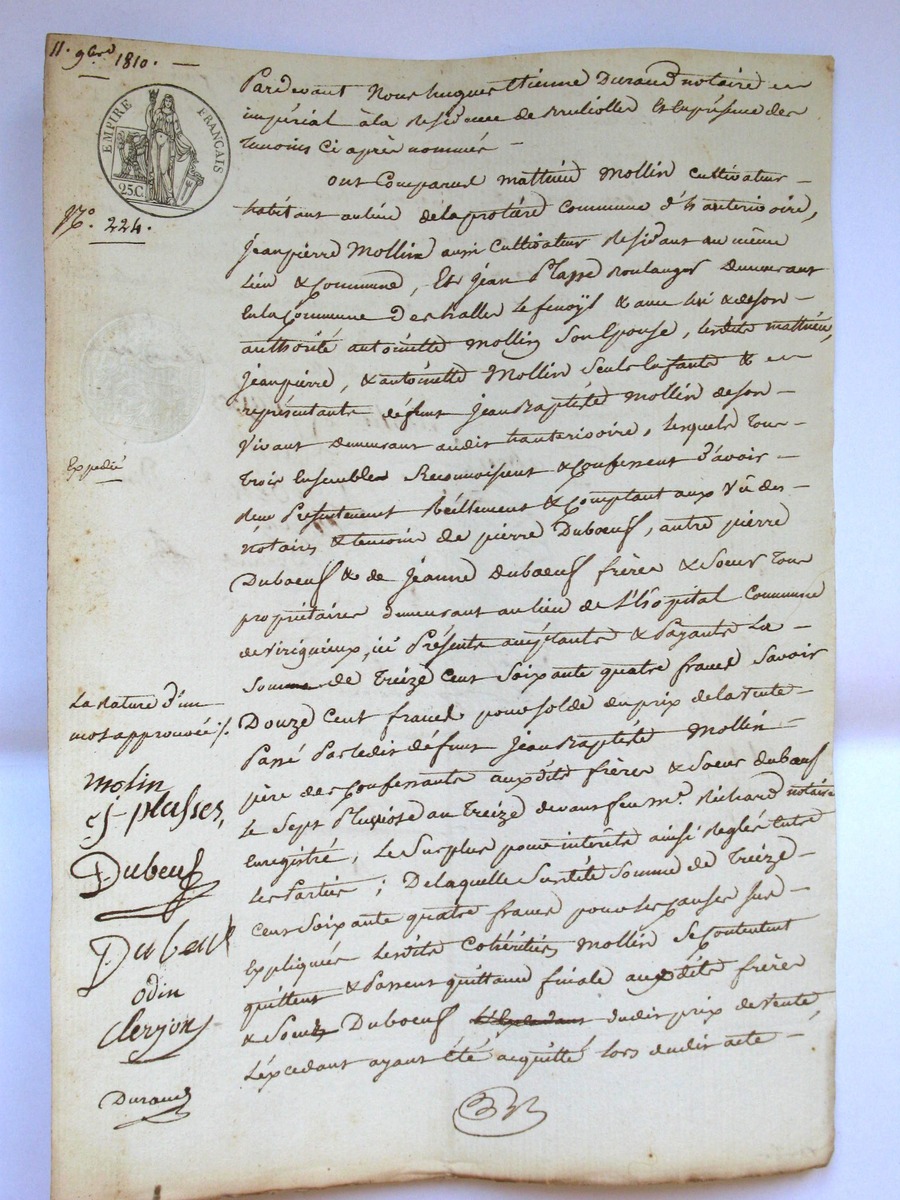 11. 9bre 1810. —
EMPIRE FRANÇAIS
25.C.
N.° 224.
Pardevant Nous hugues Etienne Durand notaire
impérial à la Residence de Bruliolles Et En présence des
temoins Ci après nommés —
ont Comparus mathieu Mollin Cultivateur —
habitant au lieu de la protäre Commune d'hauterivoire,
Jeanpierre Mollin aussi Cultivateur Residant au même
lieu & Commune, Et Jean Plasse Boulanger demeurant
En la Commune d'echalles Le fenoÿl & avec lui & de son —
authorité antoinette Mollin Son Epouse, lesdits mathieu,
Jeanpierre, & antoinette Mollin Seuls Enfants &
représentants défunt Jean Baptiste Mollin de son —
Vivant demeurant audit hauterivoire, lesquels tous
trois Ensembles Reconnoissent & Confessent d'avoir —
Reçu Présentement Réellement & Comptant aux Vû des
notaire & temoins de pierre Duboeuf, autre pierre
Duboeuf & de Jeanne Duboeuf frères & Soeur tous
propriétaires demeurant au lieu de L'hôpital Commune
de Virigneux, ici Présents acceptants & Payants La —
Somme de Treize Cent Soixante quatre francs Savoir
Douze Cent francs pour solde du prix de la Vente
Passé Par ledit défunt Jean Baptiste Mollin —
père des Confessants auxdits frères & Soeur duboeuf
Le Sept Pluviose an Treize devant feu m.e Richard notaire
Enregistré, Le Surplus pour intérêts ainsi Reglés Entre
Les Parties; De laquelle Susdite Somme de Treize —
Cent Soixante quatre francs pour les Causes sus —
Expliquées Lesdits Cohéritiers Mollin Se Contentent
quittent & Passent quittance finale auxdits frères
& Soeur Duboeuf dudit prix de Vente,
L'excedant ayant été acquitté lors dudit acte —
Expedié
La Rature d'un
mot approuvée ./.
molin
J plasses,
Dubeuf
Dubeuf
odin
Clerjon
Durand